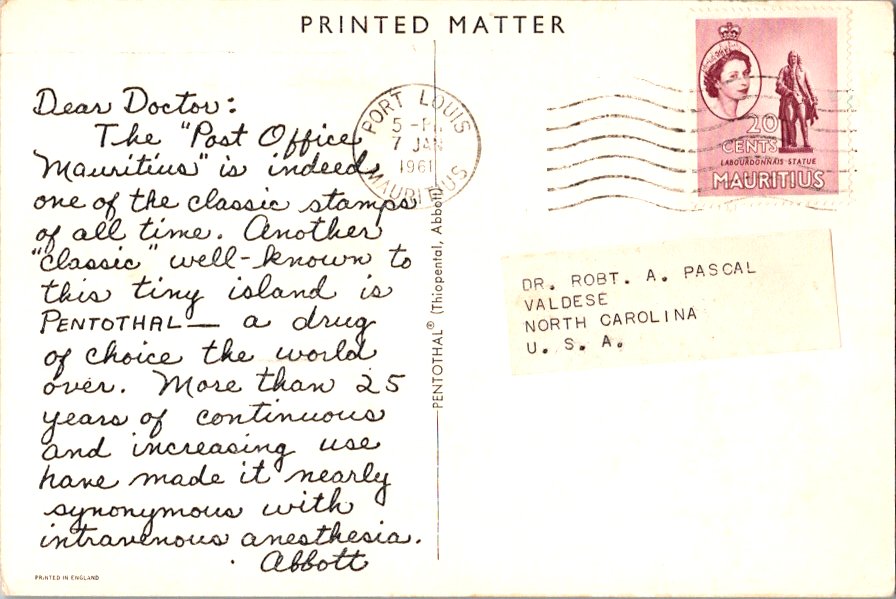 PRINTED MATTER
Dear Doctor:
The "Post Office
Mauritius" is indeed
one of the classic stamps
of all time. Another
"classic" well-known to
this tiny island is
PENTOTHAL — a drug
of choice the world
over. More than 25
years of continuous
and increasing use
have made it nearly
synonymous with
intravenous anesthesia.
Abbott
PRINTED IN ENGLAND
PENTOTHAL® (Thiopental, Abbott)
PORT LOUIS
5 - PM
7 JAN
1961
MAURITIUS
20
CENTS
LABOURDONNAIS STATUE
MAURITIUS
DR. ROBT. A. PASCAL
VALDESE
NORTH CAROLINA
U. S. A.